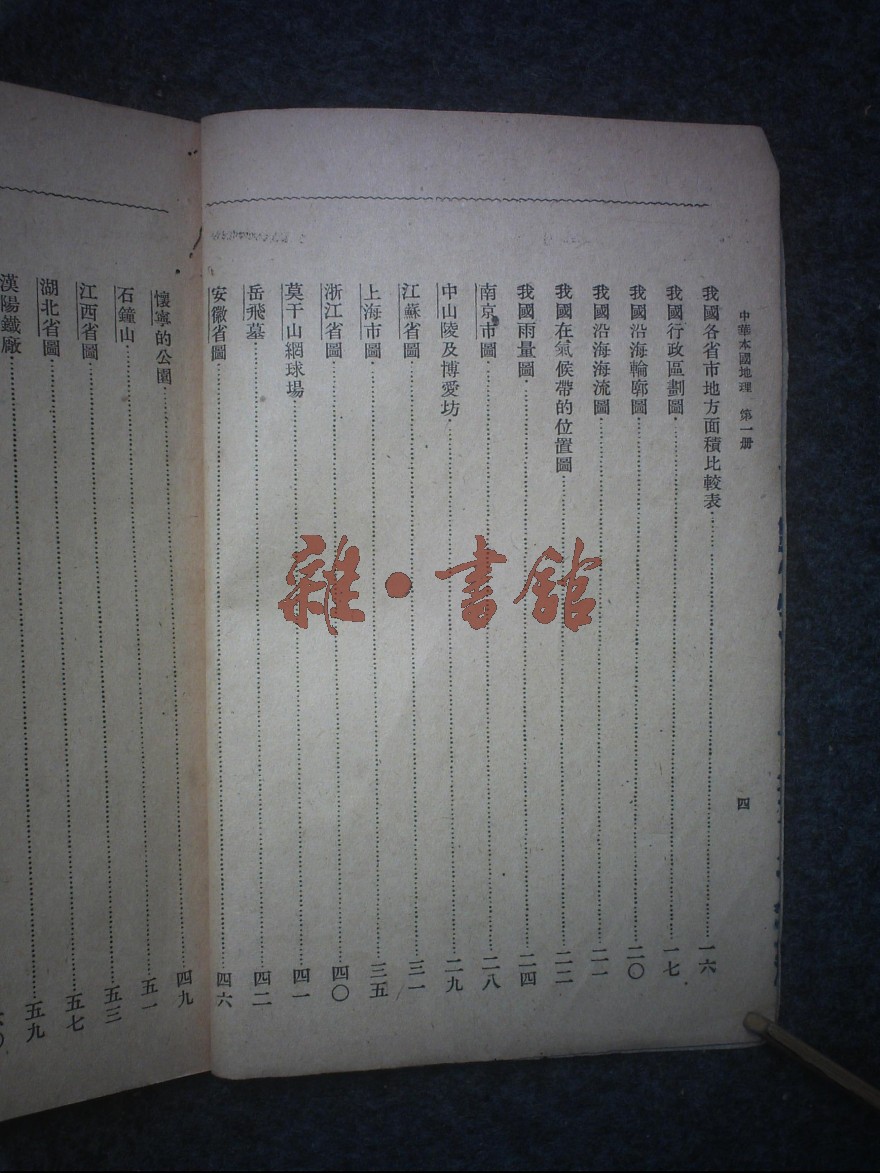 中華本國地理　第一册
四
我國各省市地方面積比較表……一六
我國行政區劃圖……一七
我國沿海輪廓圖……二〇
我國沿海海流圖……二一
我國在氣候帶的位置圖……二二
我國雨量圖……二四
南京市圖……二八
中山陵及博愛坊……二九
江蘇省圖……三一
上海市圖……三五
浙江省圖……四〇
莫干山網球場……四一
岳飛墓……四二
安徽省圖……四六
懷寧的公園……四九
石鐘山……五一
江西省圖……五三
湖北省圖……五七
漢陽鐵廠……五九
雜·書館